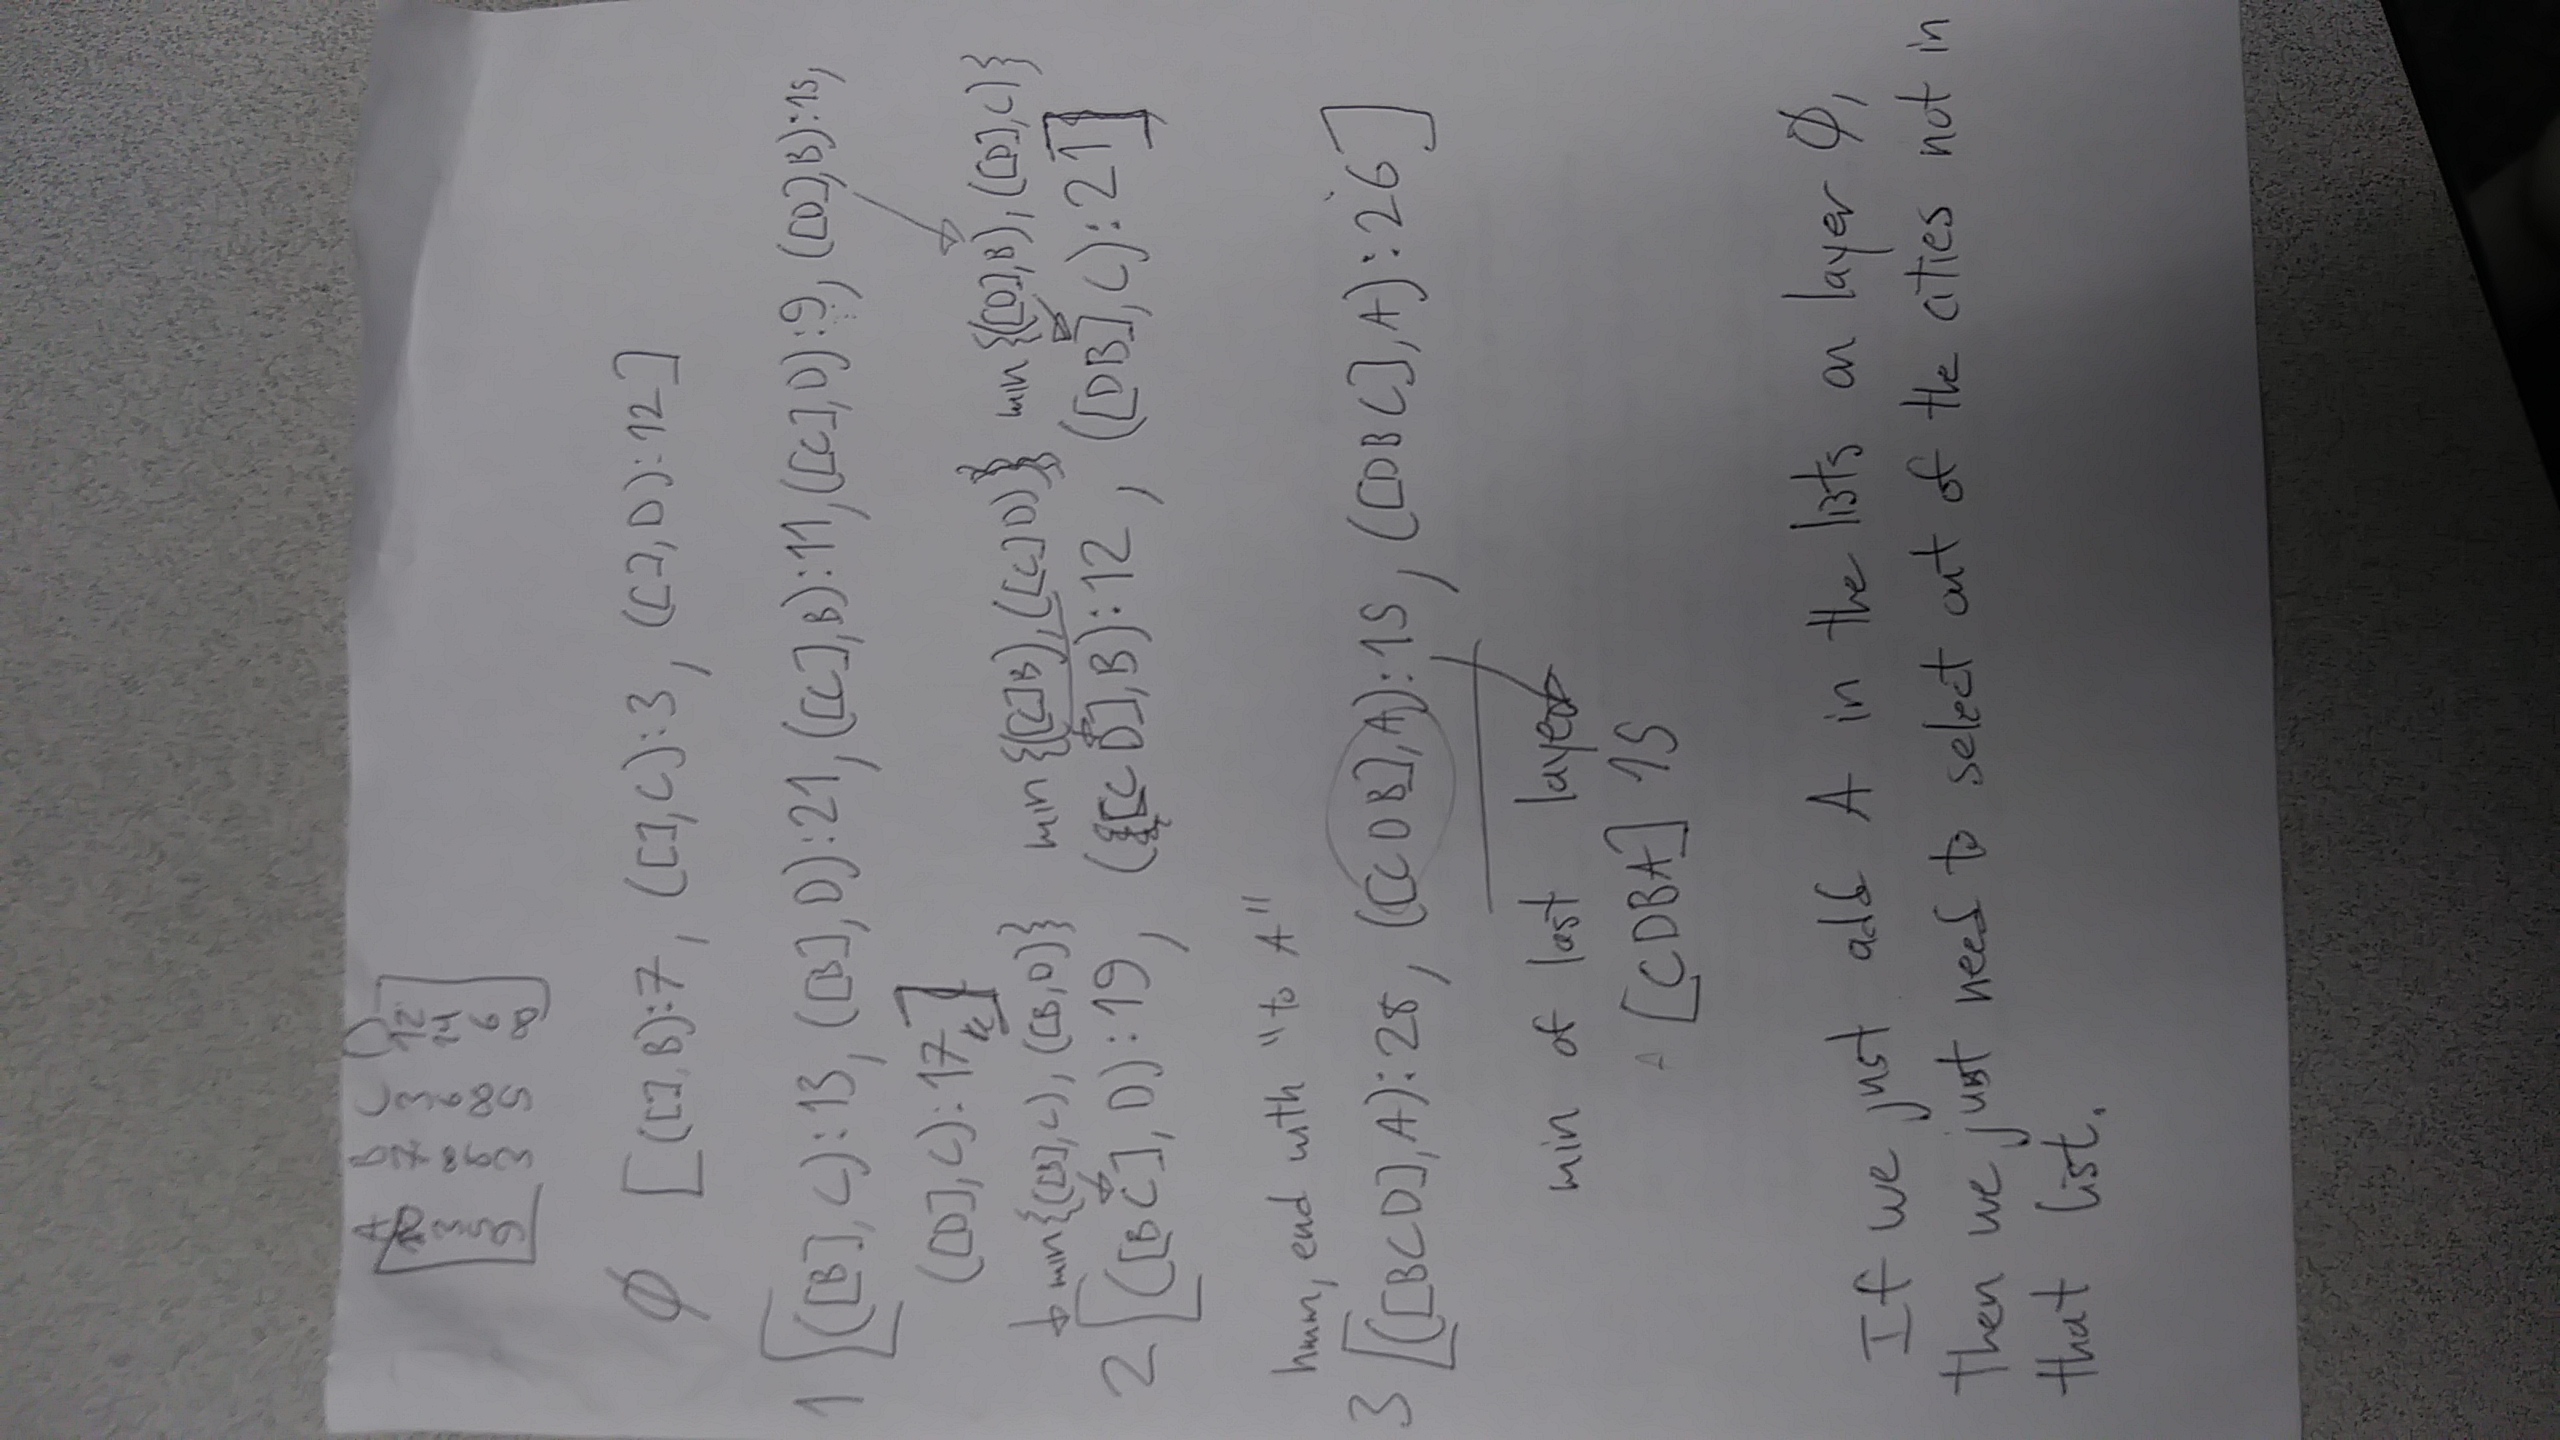 A B C D
∞ 7 3 12
3 ∞ 6 14
5 8 ∞ 6
9 3 5 ∞
Ø [([],B):7, ([],C):3, ([],D):12]
1 [([B],C):13, ([B],D):21, ([C],B):11, ([C],D):9, ([D],B):15,
([D],C):17]
min{([B],C), ([B,D)} min{([C]B), ([C]D)} min{([D],B), ([D],C)}
2 [([BC],D):19, ([CD],B):12, ([DB],C):21]
hmm, end with "to A"
3 [([BCD],A):28, ([CDB],A):15, ([DBC],A):26]
min of last layer
[CDBA] 15
If we just add A in the lists on layer Ø,
then we just need to select out of the cities not in
that list.